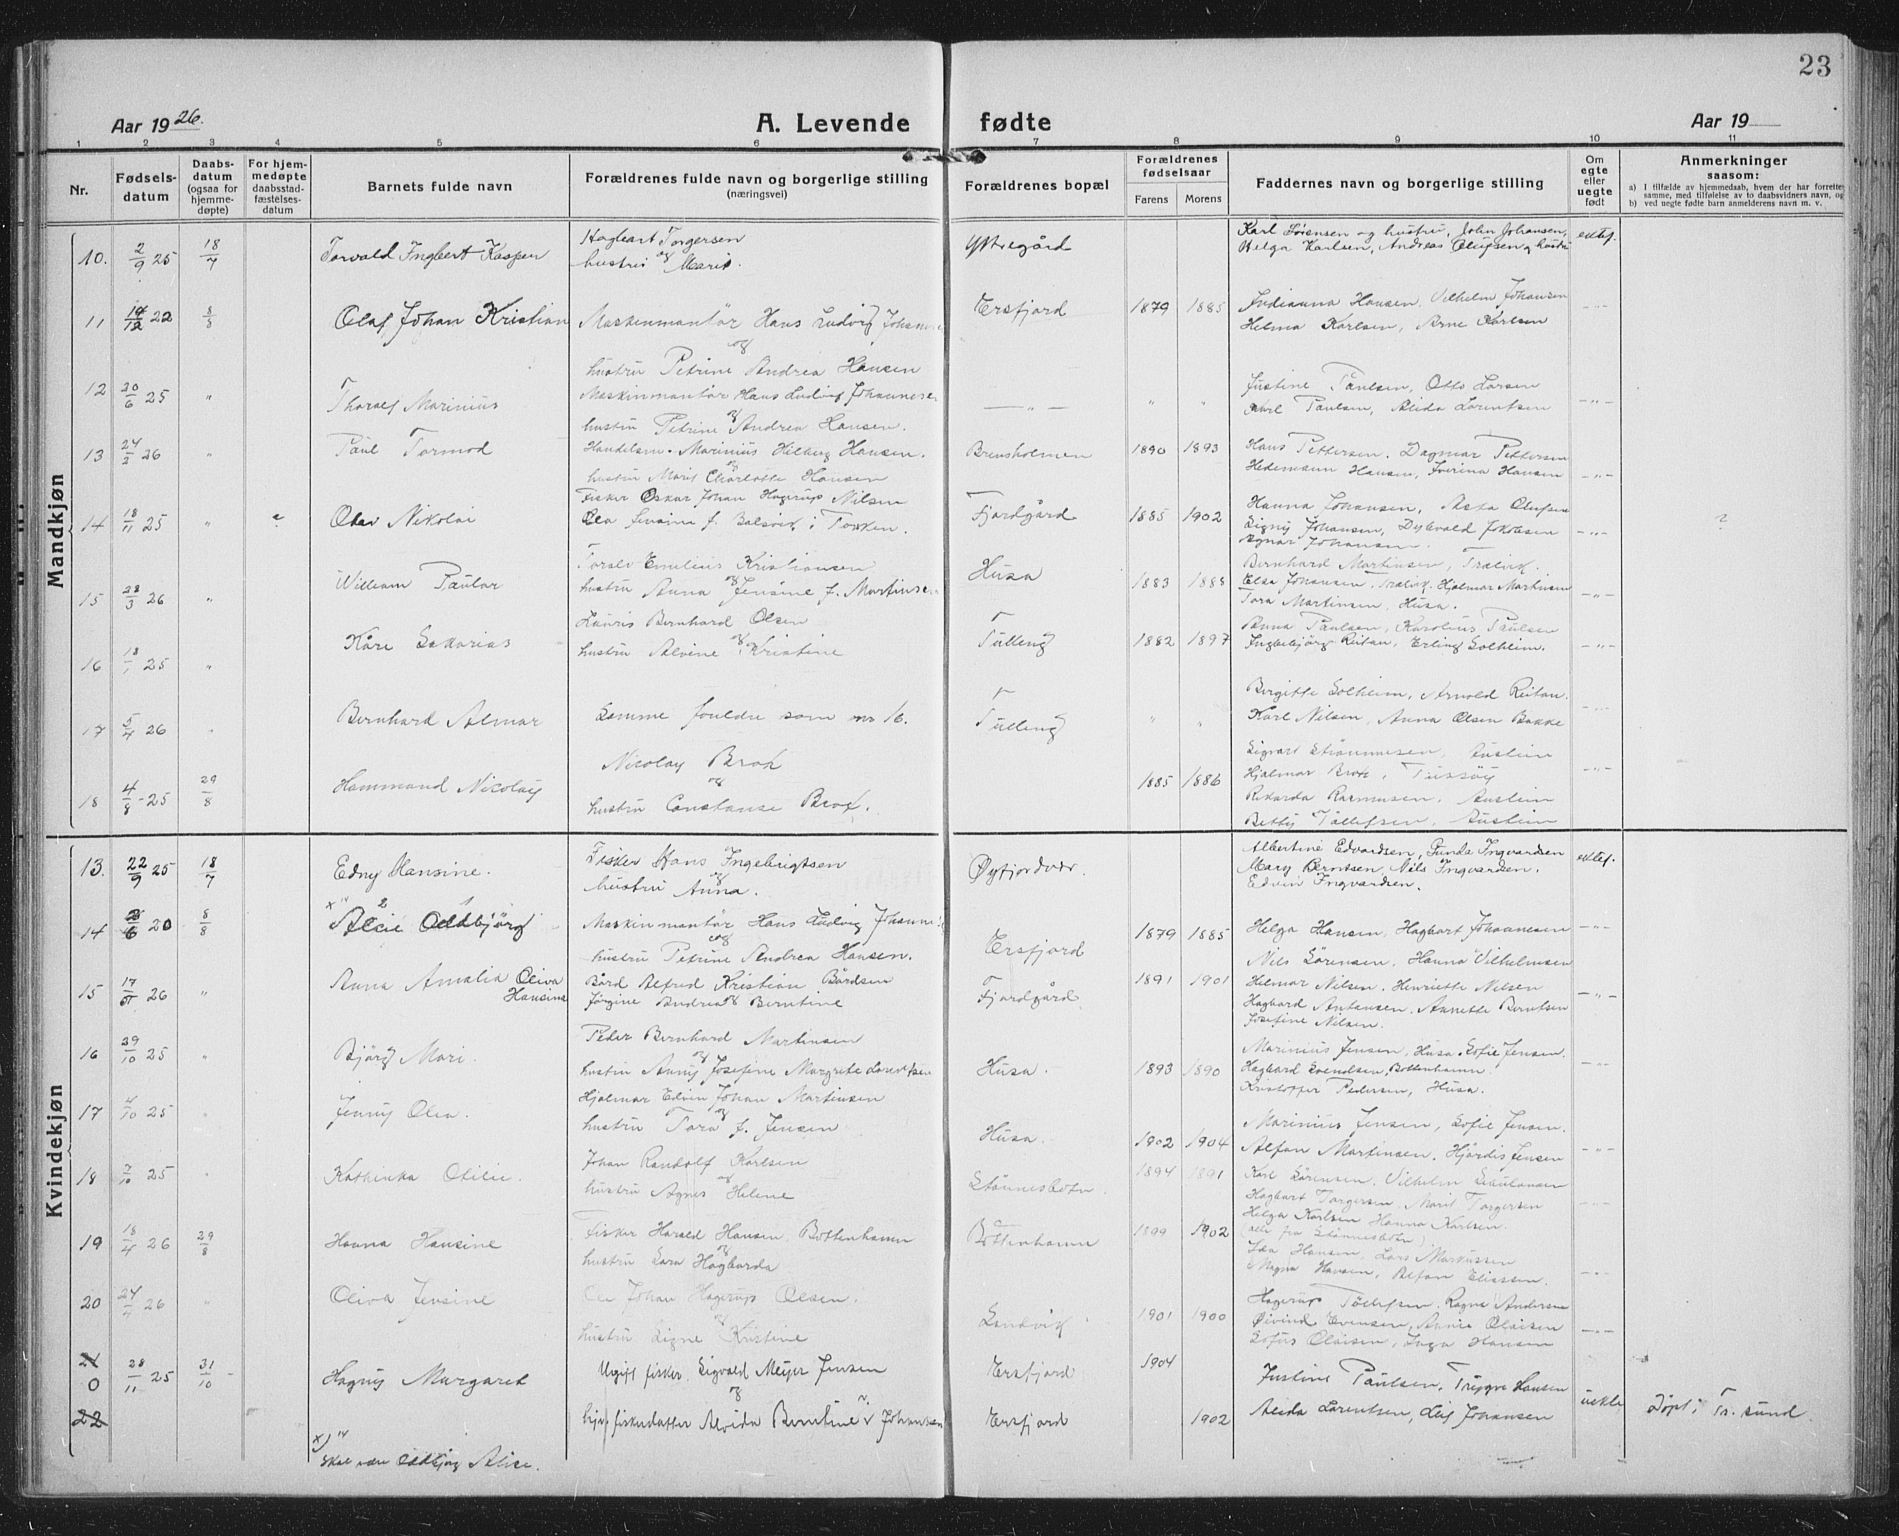 23
Aar 1926.
A. Levende fødte
Aar 19
1 2 3 4 5 6 7 8 9 10 11
Nr.
Fødsels-
datum
Daabs-
datum
(ogsaa for
hjemme-
døpte)
For hjem-
medøpte
daabsstad-
fæstelses-
datum
Barnets fulde navn
Forældrenes fulde navn og borgerlige stilling
(næringsvei)
Forældrenes bopæl
Forældrenes
fødselsaar
Farens Morens
Faddernes navn og borgerlige stilling
Om
egte
eller
uegte
født
Anmerkninger
saasom:
a) I tilfælde av hjemmedaab, hvem der har forrettet
samme, med tilføielse av to daabsvidners navn, og
b) ved uegte fødte barn anmelderens navn m. v.
Mandkjøn
10. 2/9 25 18/7 Torvald Ingbert Kasper
Hagbart Torgersen
og
hustru Marit.
Yttregård
Karl Sørensen og hustru, John Johansen,
Helga Karlsen, Andreas Olufsen og hustru
ektef.
11 12 22 8/8 Olaf Johan Kristian
Maskinmontør Hans Ludvig
og
hustru Petrine Andrea Hansen
Ersfjord 1879 1885
Indianna Hansen, Vilhelm Johansen
Helma Karlsen, Arne Karlsen
—"—
12 20/6 25 " Thoralf Marinius
Maskinmontør Hans Ludvig Johannesen
og
hustru Petrine Andrea Hansen.
— " — " "
Justine Paulsen, Otto Larsen
Karl Paulsen, Alida Lorentsen
—"—
13 24/2 26 " Paul Tormod
Handelsm. Marinius Hilberg Hansen.
og
hustru Marit Charlotte Hansen
Brensholmen 1890 1893
Hans Pettersen, Dagmar Pettersen
Hedemann Hansen, Hansen
—"—
14 18/11 25 " Olav Nikolai
Fisker Oskar Johan Hagerup Nilsen
Ola f. Balsvik i Torsken.
Fjordgård 1885 1902
Hanna Johansen, Asta Olufsen
Signy Johansen, Dybvald Jakobsen
Agnar Johansen.
—"— ?
15 28/3 26 " William Paular
Toralv Emilius Kristiansen
og
hustru Anna Jensine f. Martinsen
Husa 1883 1888
Bernhard Martinsen, Trælvik.
Elsa Johansen, Trælvik, Hjalmar Martinsen
Tora Martinsen, Husa.
—"—
16 25 " Kåre Sakarias
Lauris Bernhard Olsen
og
hustru Alvine Kristine
Tulleng 1882 1897
Anna Paulsen, Karolius Paulsen
Ingebjørg Reitan, Erling Solheim.
—"—
17 5/4 26 " Bernhard Almar
Samme foreldre som nr 16.
Tulleng " "
Birgitte Solheim, Arnold Reitan.
Karl Nilsen, Anna Olsen Bakke
—"—
18 4/8 - 25 29/8 Hammond Nicolay
Nicolay Brox
og
hustru Constanse Brox.
1885 1886
Sigvart Strømmesen,
Hjalmar Brox, Tussøy
Rikarda Rasmussen,
Betty Tollefsen,
—"—
Kvindekjøn
13. 22/9 25 18/7 Edny Hansine.
Fisker Hans Ingebrigtsen
og
hustru Anna.
Øyfjordvær.
Albertine Edvardsen, Gunda Ingvardsen
Mary Berntsen, Nils Ingvardsen,
Edvin Ingvardsen.
ektef.
14 6 20 8/8 x) 2 1 Alcie Oddbjörg
Maskinmontør Hans Ludvig
og
hustru Petrine Andrea Hansen.
Ersfjord 1879 1885
Helga Hansen, Hagbart Johannesen
Nils Sörensen, Hanna Vilhelmsen
—"—
15 17 26 " Anna Amalia Oliva
Hansine
Bård Alfred Kristian Bårdsen
og
Jörgine Andrea Berntine
Fjordgård 1891 1901
Helmar Nilsen, Henriette Nilsen
Hagbard Antonsen, Annette Berntsen
Josefine Nilsen.
—"—
16 29/10 25 " Bjørg Mari.
Peder Bernhard Martinsen
og
hustru Anny Josefine Margrete Lorentsen
Husa. 1893 1890
Marinius Jensen, Husa. Sofie Jensen.
Hagbard Svendsen, Bottenhamn
Kristoffer Pedersen, Husa.
—"—
17 4/10 25 " Jenny Olea.
Hjalmar Edvin Johan Martinsen
og
hustru Tora f. Jensen
Husa. 1902 1904
Marinius Jensen, Sofie Jensen.
Alfon Martinsen, Hjördis Jensen
—"—
18 7/10 25 " Kathinka Otilie.
Johan Randolf Karlsen
og
hustru Agnes Helene
Stönnesbotn. 1894 1891
Karl Sörensen, Vilhelm
Hagbart Torgersen, Marit Torgersen
Helga Karlsen Hanna Karlsen.
(alle fra Stönnesbotn)
—"—
19 18/4 26 29/8 Hanna Hansine
Fisker Harald Hansen, Bottenhamn
og
hustru Sara Hagbarda
Bottenhamn 1899 1902
Hansen, Lars Markussen
Magna Hansen, Alfon Eliassen.
—"—
20 24 26 " Oliva Jensine
Ole Johan Hagerup Olsen.
og
hustru Signe Kristine
Sandvik 1901 1900
Hagerup Tollefsen, Ragna Andersen
Øivind Evensen, Annie Olaisen
Sofus Olaisen, Inga Hansen
—"—
21
0 28/11 25 31/10 - Hagny Margaret
Ugift fisker Sigvald Meyer Jensen
og
Ersfjord 1904
Justine Paulsen, Trygve Hansen
22
fiskerdatter Alvida Berntine Johansen
Ersfjord 1902
Alida Lorentsen, Leif Johansen
uekte
Döpt i Tr. sund.
x) 14
Skal være Oddbjørg Alice.